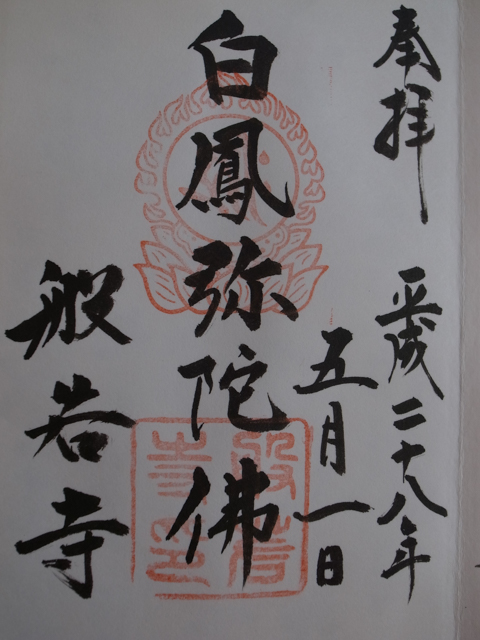 奉拝
平成二十八年
五月一日
白鳳弥陀佛
般若寺